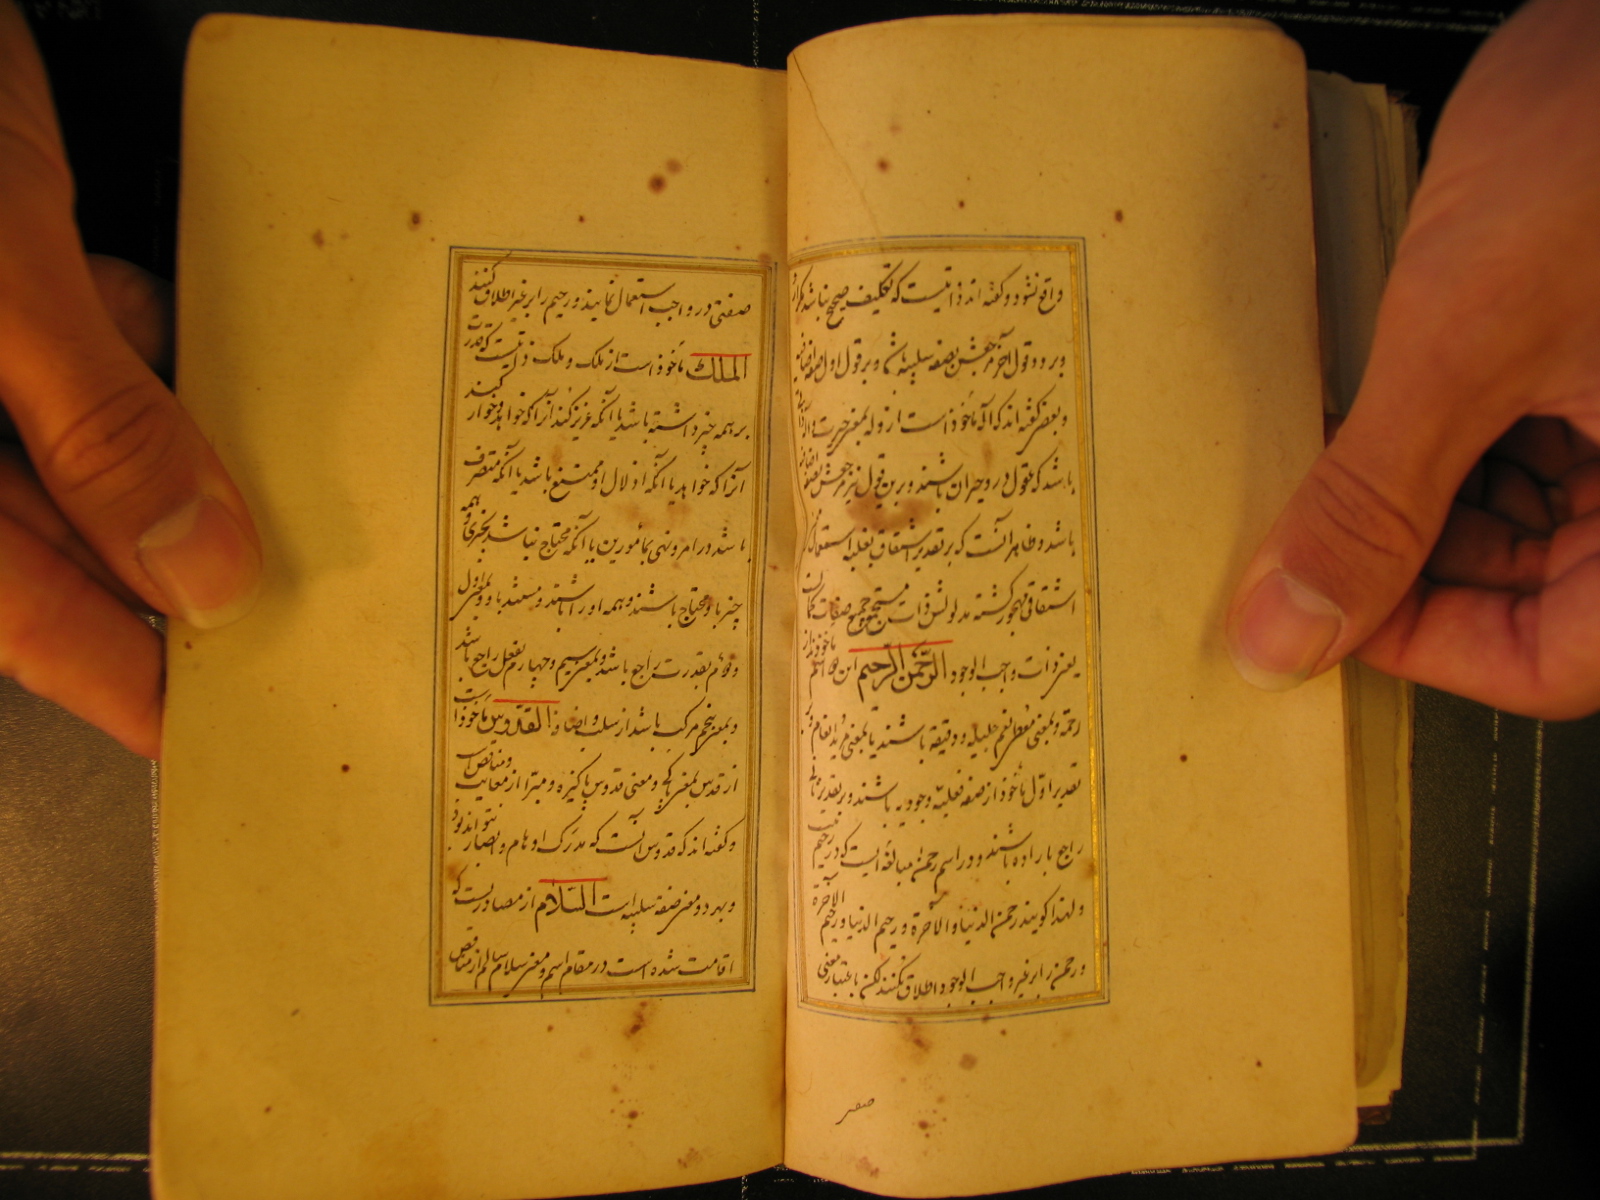 واقع نشود و گفته اند ذاتیست که تکلیف صحیح نباشد مگر از و
و بر دو قول آخر مرجعش بصفه سلبیه باشد و بر قول اول صفه اضافیه
و بعضی گفته اند که اله ماخوذ است از وله بمعنی حیرت و اله ذاتی
باشد که عقول درو حیران باشند و برین قول نیز مرجعش بصفه اضافیه
باشد و ظاهر آنست که بر تقدیر اشتقاق بغلبه استعمال
اشتقاقی مهجور گشته مدلولش ذات مستجمع جمیع صفات کمالات
یعنی ذات واجب الوجود الرحمن الرحیم این دو اسم ماخوذند از
رحمة و بمعنی معطی نعم جلیله و دقیقه باشند یا بمعنی مرید انعام و بر
تقدیر اول ماخوذ از صفه فعلیه وجودیه باشند و بر تقدیر ثانی
راجع باراده باشند و در اسم رحمن مبالغه ایست که در رحیم نیست
و لهذا گویند رحمن الدنیا و الآخرة و رحیم الدنیا و رحیم الآخرة
و رحمن را بر غیر واجب الوجود اطلاق نکنند لکن باعتبار معنی
صفتی
صفتی در واجب استعمال نمایند و رحیم را بر غیر اطلاق کنند
الملک ماخوذ است از ملک و ملک ذاتیست که قدرت
بر همه چیز داشته باشد یا آنکه عزیز کند آنرا که خواهد و خوار کند
آنرا که خواهد یا آنکه اذلال او ممتنع باشد یا آنکه متصرف
باشد در امر و نهی بمأمورین یا آنکه محتاج نباشد بچیزی و همه
چیز باو محتاج باشند و همه او را باشند و مستند باو و بمعنی اول
و دوم بقدرت راجع باشد و بمعنی سیم و چهارم بفعل راجع باشد
و بمعنی پنجم مرکب باشد از سلب و اضافه القدوس ماخوذ است
از قدس بمعنی پاکی و معنی قدوس پاکیزه و مبرا از معایب و مناقص است
و گفته اند که قدوس آنست که مدرک اوهام و ابصار نتواند بود
و بهر دو معنی صفه سلبیه است السلام از مصادریست که
اقامت شده است در مقام اسم و معنی سلام سالم از مناقص